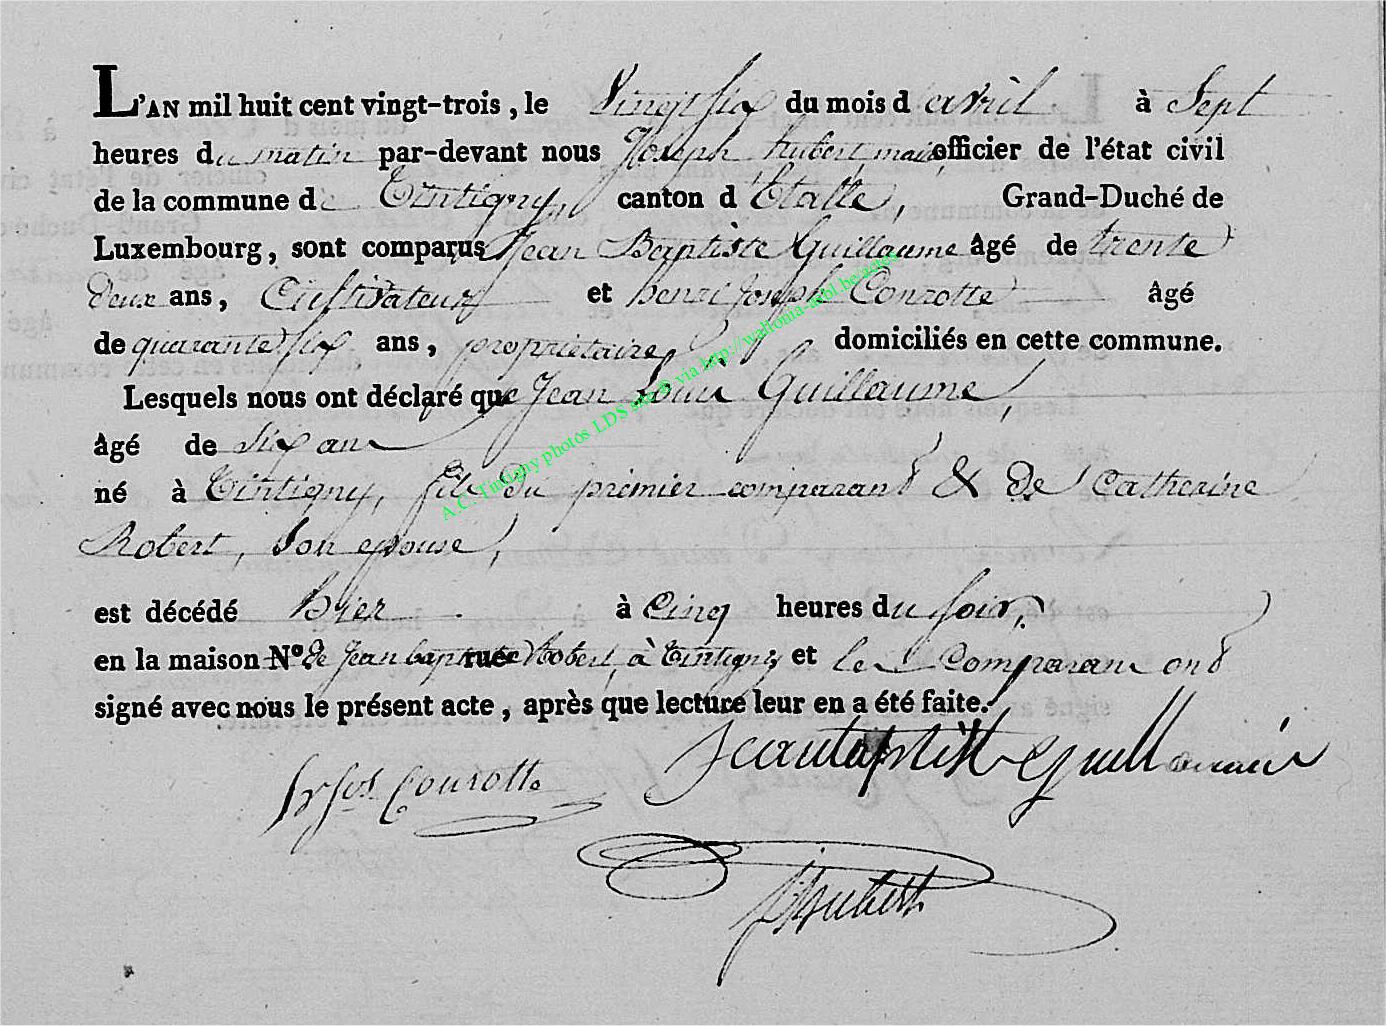 L'AN mil huit cent vingt-trois, le Vingt six du mois d'avril à Sept
heures du matin par-devant nous Joseph hubert, maire officier de l'état civil
de la commune de Tintigny, canton d'Etalle, Grand-Duché de
Luxembourg, sont comparus Jean Baptiste Guillaume âgé de trente
deux ans, Cultivateur et henri Joseph Conrotte âgé
de quarante six ans, propriétaire domiciliés en cette commune.
Lesquels nous ont déclaré que Jean Louis Guillaume,
âgé de six ans
né à Tintigny, fils du premier comparant & de Catherine
Robert, son epouse,
est décédé hier à cinq heures du soir,
en la maison N° de Jean baptiste rue Robert, à Tintigny et les Comparans ont
signé avec nous le présent acte, après que lecture leur en a été faite.
Jeanbaptist guillaume
hr jos Conrotte
J Hubert
A.C. Tintigny photos LDS via http://wallonia-asbl.be/actes